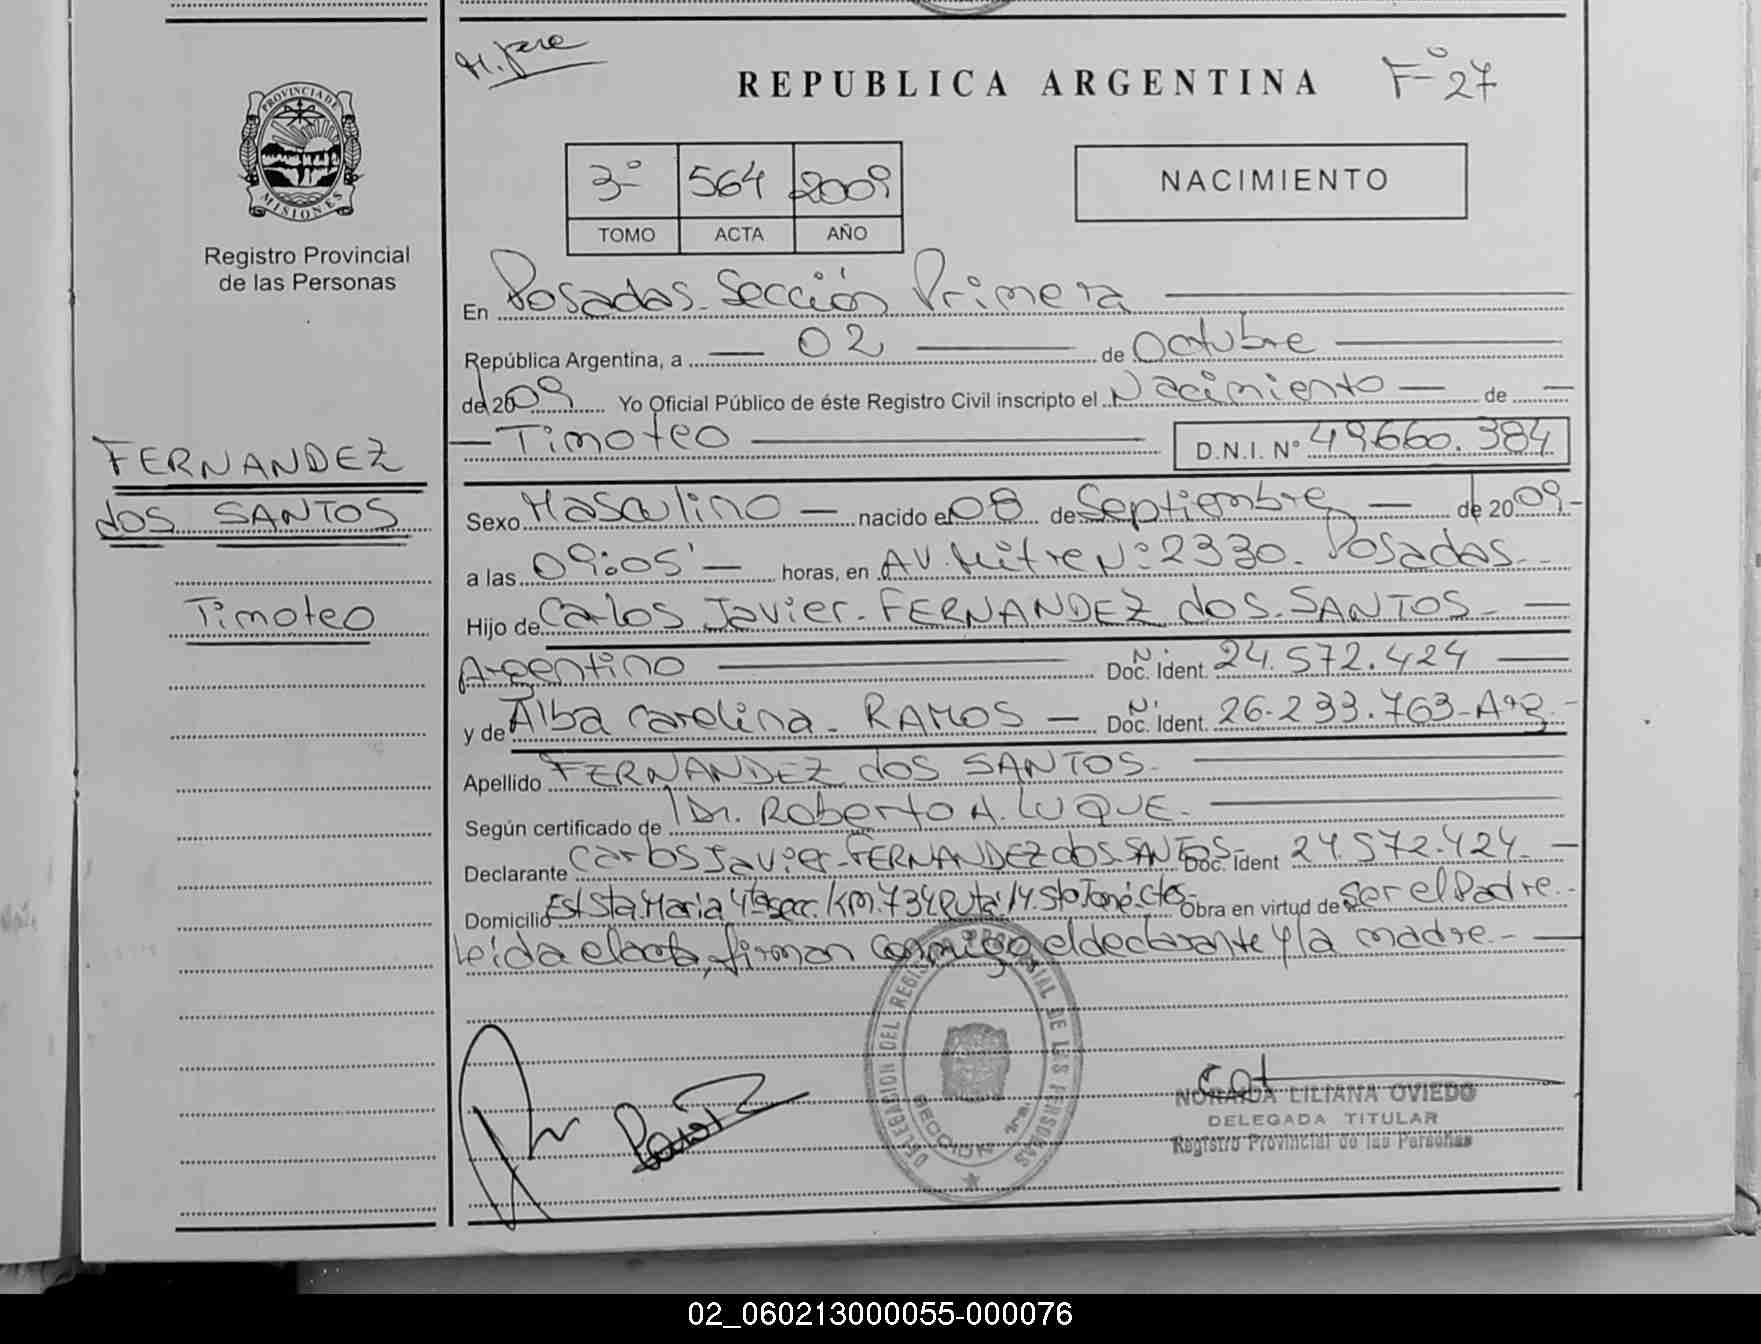 REPUBLICA ARGENTINA
F° 27
PROVINCIA DE
MISIONES
Registro Provincial
de las Personas
3° 564 2009
TOMO ACTA AÑO
NACIMIENTO
En Posadas - Sección Primera
República Argentina, a 02 de Octubre
de 2009 Yo Oficial Público de éste Registro Civil inscripto el Nacimiento de
Timoteo D.N.I. N° 49.660.384
FERNANDEZ
dos SANTOS
Timoteo
Sexo Masculino nacido el 08 de Septiembre de 2009
a las 09:05' horas, en AV. Mitre N° 2330. Posadas.
Hijo de Carlos Javier - FERNANDEZ dos SANTOS
Argentino Doc. Ident. N° 24.572.424
y de Alba Carolina - RAMOS Doc. Ident. N° 26.233.763 - Arg.
Apellido FERNANDEZ dos SANTOS
Según certificado de Dr. Roberto A. LUQUE.
Declarante Carlos Javier - FERNANDEZ dos SANTOS Doc. Ident 24.572.424
Domicilio Est Sta. Maria 4ta secc. Km. 734 Ruta 14. Sto Tomé. Ctes. Obra en virtud de ser el Padre.
Leida el acta, firman conmigo, el declarante y la madre.
DELEGACION DEL REGISTRO PROVINCIAL DE LAS PERSONAS
SECCION 1ra.
NORAIDA LILIANA OVIEDO
DELEGADA TITULAR
Registro Provincial de las Personas
02_060213000055-000076